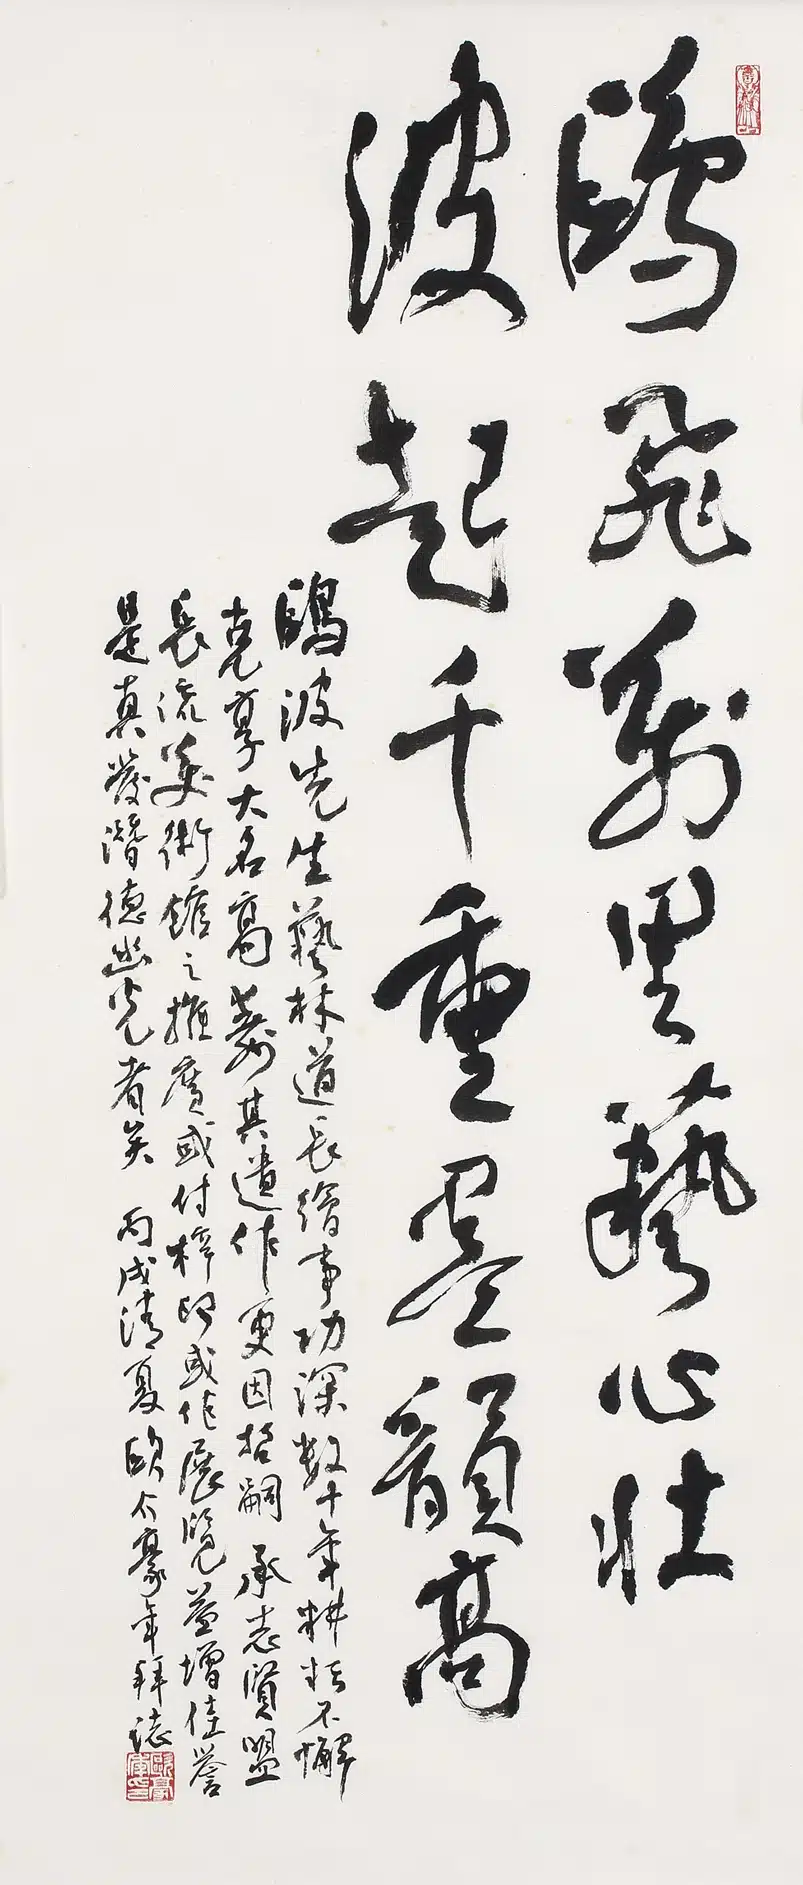 鷗飛萬里藝心壯
波起千重墨韻高
鷗波先生藝林道長繪事功深數十年耕耘不懈
克享大名高壽其遺作更因哲嗣承志賢盟
長流美術館之推廣或付梓印或作展覽益增佳譽
是真發潛德幽光者矣 丙戌清夏歐豪年拜誌